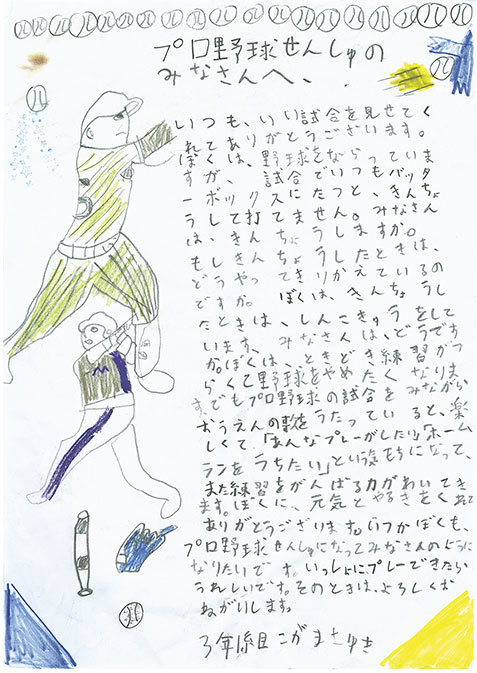 プロ野球せんしゅの
みなさんへ、
いつも、いい試合を見せてく
れてありがとうございます。
ぼくは、野球をならっていま
すが、試合でいつもバッタ
ーボックスにたつと、きんちょ
うして打てません。みなさん
は、きんちょうしますか。
もしきんちょうしたときは、
どうやってきりかえているの
ですか。ぼくは、きんちょうし
たときは、しんこきゅうをして
います。みなさんは、どうです
か。ぼくは、ときどき練習がつ
らくて野球をやめたくなりま
す。でもプロ野球の試合をみながら
おうえんの歌をうたっていると、楽
しくて、「あんなプレーがしたい」「ホーム
ランをうちたい」という気もちになって、
また練習をがんばる力がわいてき
ます。ぼくに、元気とやるきをくれて
ありがとうございます。いつかぼくも、
プロ野球せんしゅになってみなさんのように
なりたいです。いっしょにプレーできたら
うれしいです。そのときは、よろしくお
ねがいします。
3年 組 こが まさゆき